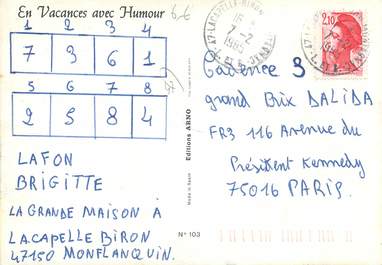 En Vacances avec Humour 6-6
1 2 3 4
7 3 6 1
5 6 7 8
2 5 8 4
LAFON
BRIGITTE
LA GRANDE MAISON À
LACAPELLE BIRON
47150 MONFLANQUIN.
Editions ARNO
Made in Spain
N° 103
47-LACAPELLE-BIRON
7-2
1985
2,10
Cadence 3
grand Prix DALIDA
FR3 116 Avenue du
Président Kennedy
75016 PARIS.